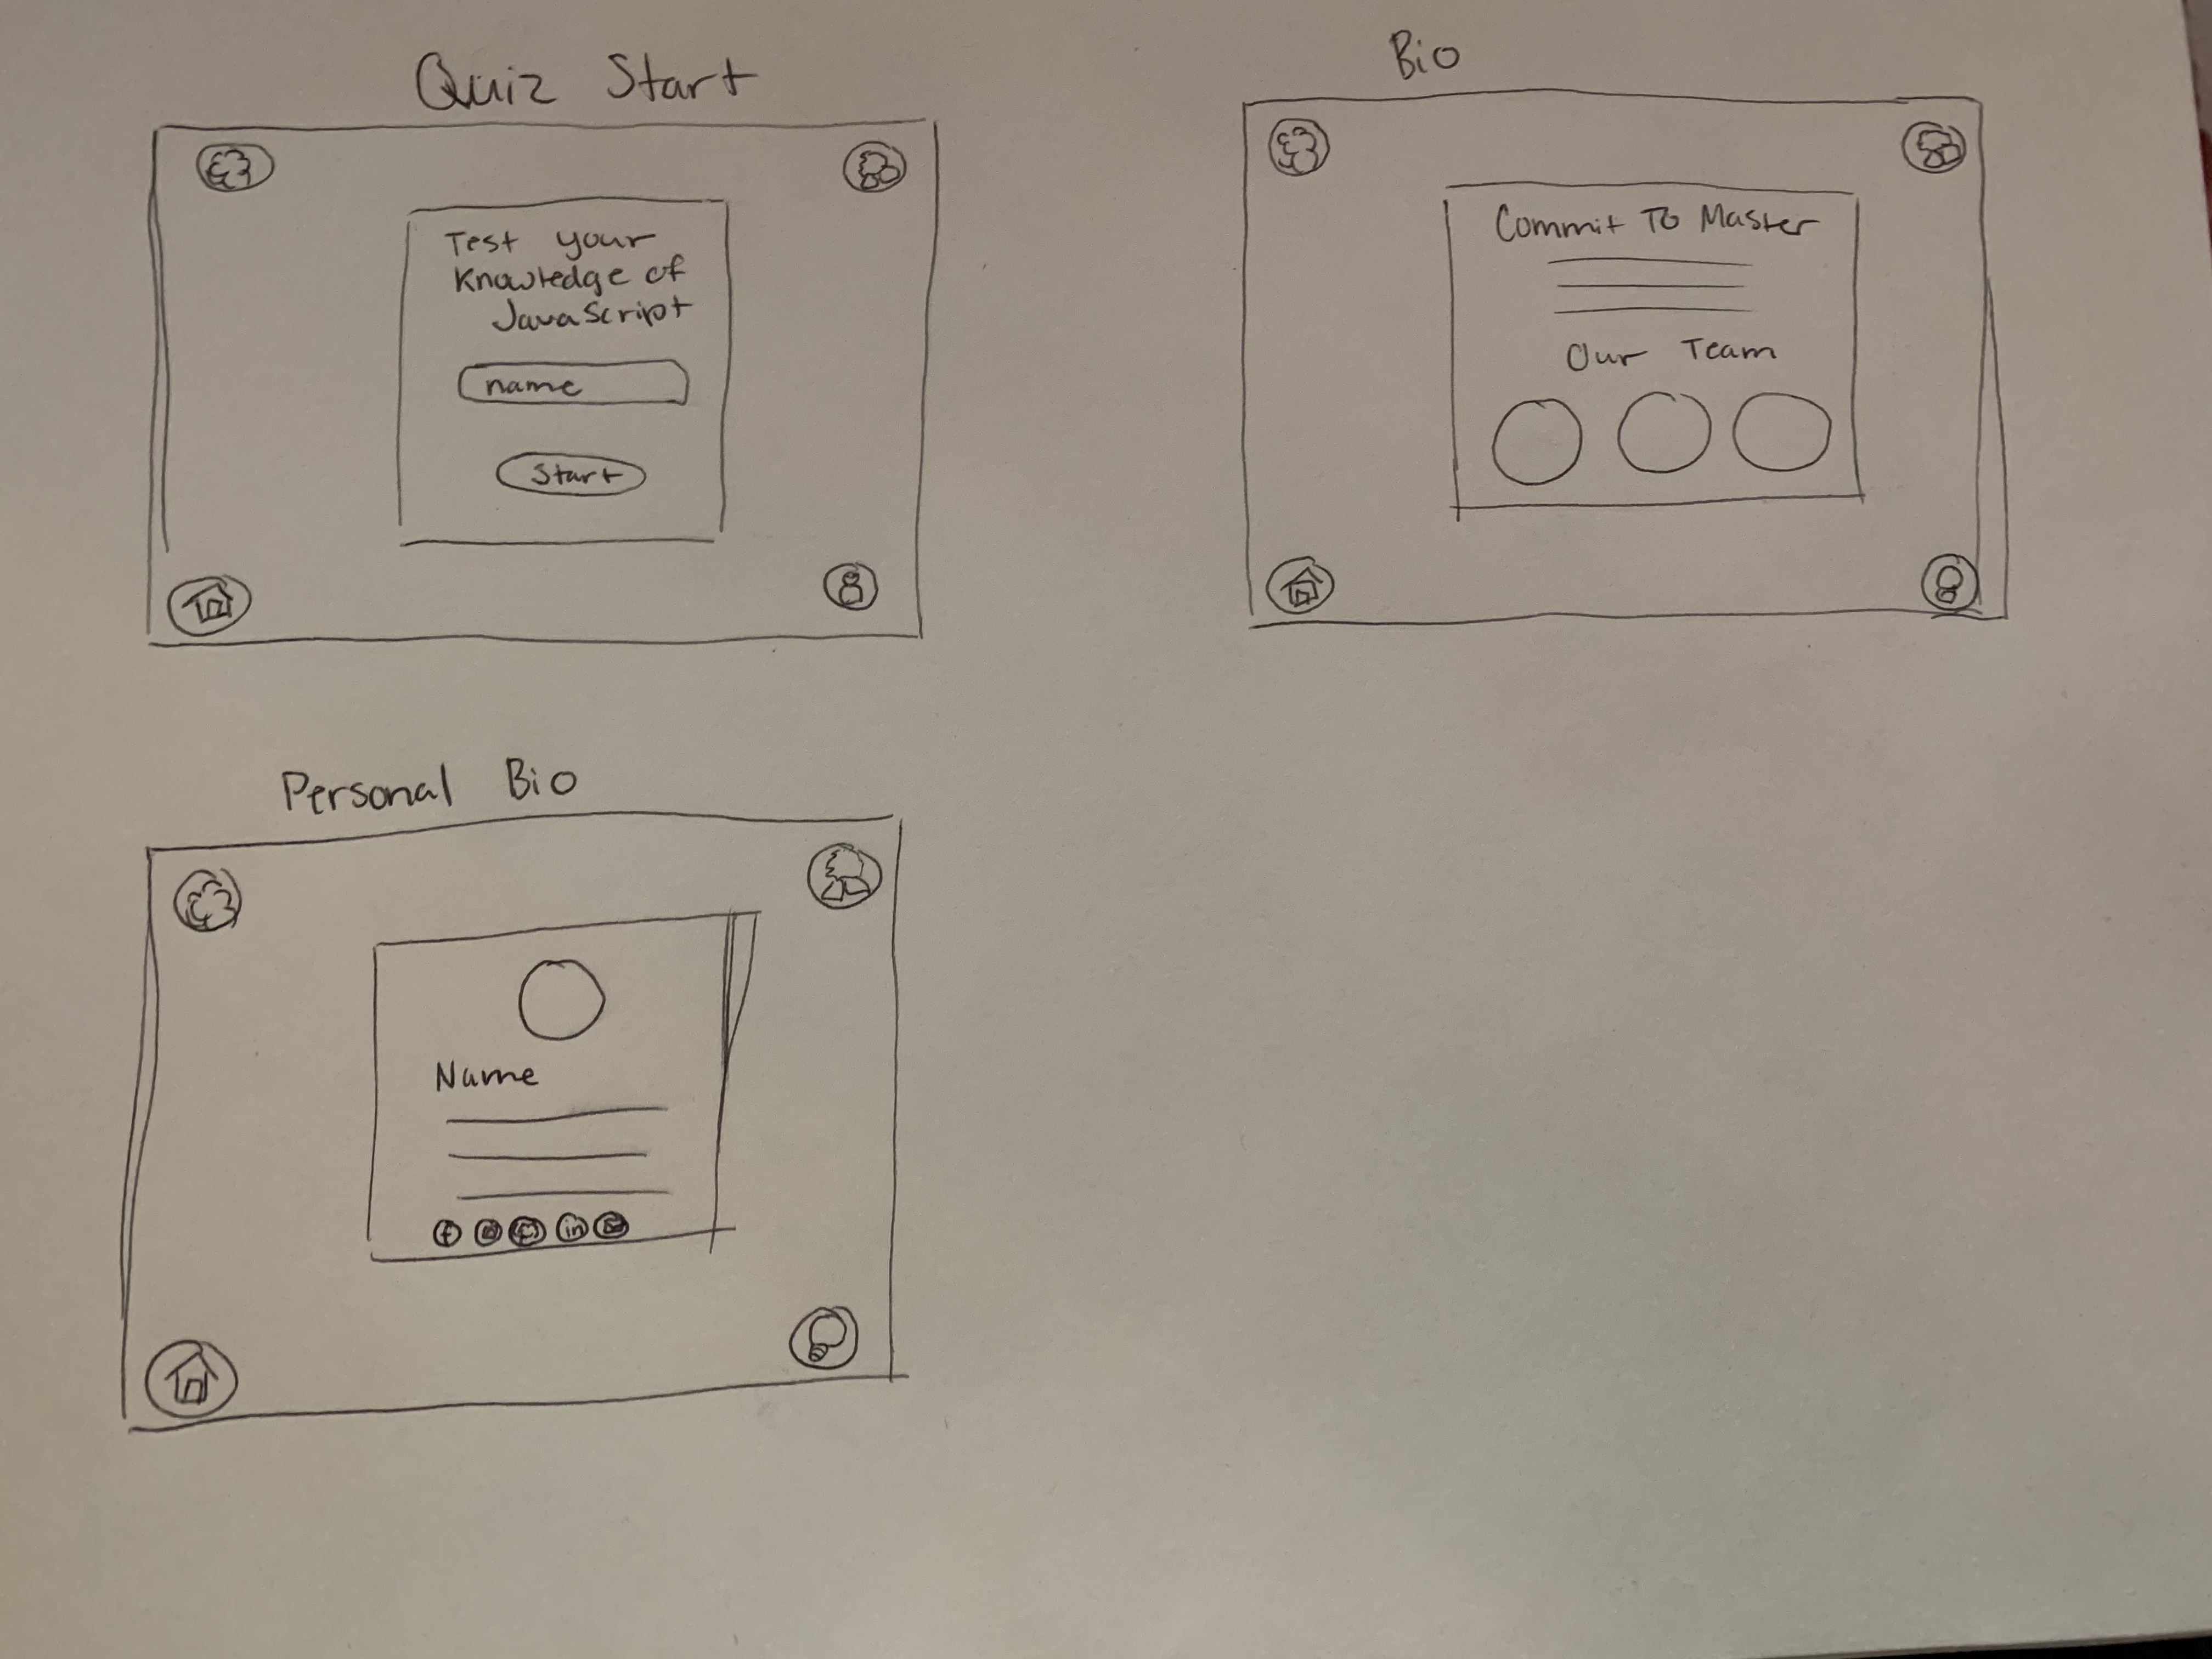 Quiz Start
Test your
Knowledge of
JavaScript
name
Start
Bio
Commit To Master
Our Team
Personal Bio
Name
f
in